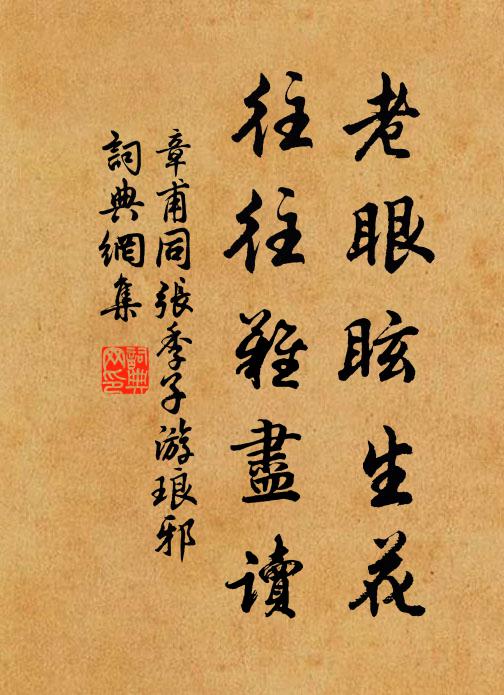 老眼眩生花
往往難盡讀
章甫同張季子游琅邪
詞典網集
詞典網印